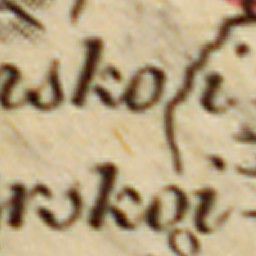 nskoi
rskoi